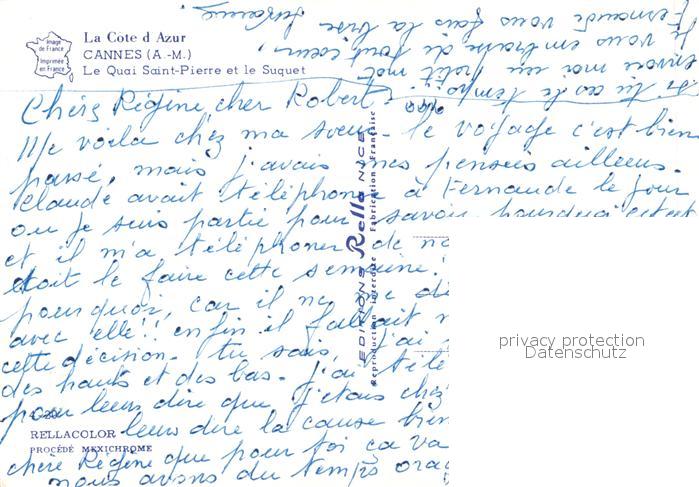 Image
de France
Imprimée
en France
La Côte d'Azur
CANNES (A.-M.)
Le Quai Saint-Pierre et le Suquet
Si tu as le temps
envoie moi un petit mot
je vous embrasse de tout cœur.
Fernande vous fais la bise
Chère Régine, cher Robert
Me voila chez ma sœur. le voyage c'est bien
passé, mais j'avais mes pensées ailleurs.
Claude avait téléphoné à Fernande le jour
ou je suis partie pour savoir
et il m'a téléphoner de
doit le faire cette semaine.
pourquoi, car il ne me di
avec elle!! enfin il fallait
cette décision. tu sais, j'ai
des hauts et des bas. j'ai télé
pour leurs dire que j'étais chez
leurs dire la cause bien
chère Régine que pour toi ca va
nous avons du temps orag
EDITIONS Rella NICE
Reproduction interdite Fabrication Française
RELLACOLOR
PROCÉDÉ MEXICHROME
privacy protection
Datenschutz